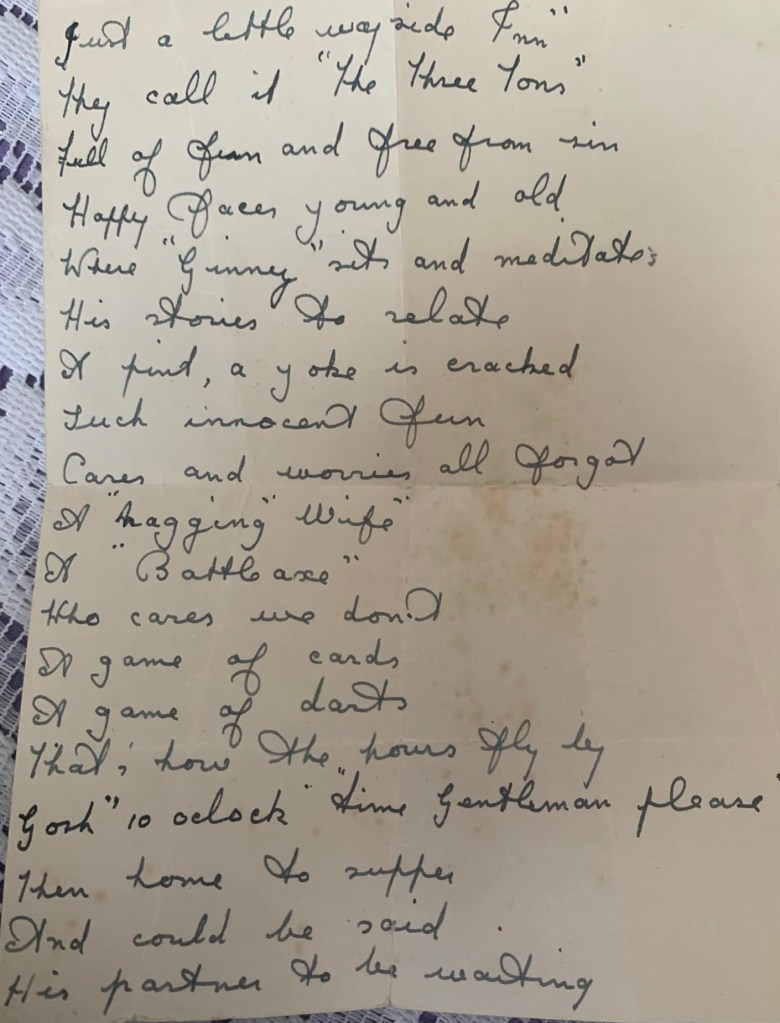 Just a little wayside Inn"
They call it "The Three Tons"
Full of fun and free from sin
Happy faces young and old
Where "Ginney" sits and meditates
His stories to relate
A pint, a yoke is cracked
Such innocent fun
Cares and worries all forgot
A "nagging" Wife"
A "Battle axe"
Who cares we don't
A game of cards
A game of darts
That's how the hours fly by
Gosh" 10 oclock "time Gentleman please"
Then home to supper
And could be said
His partner to be waiting